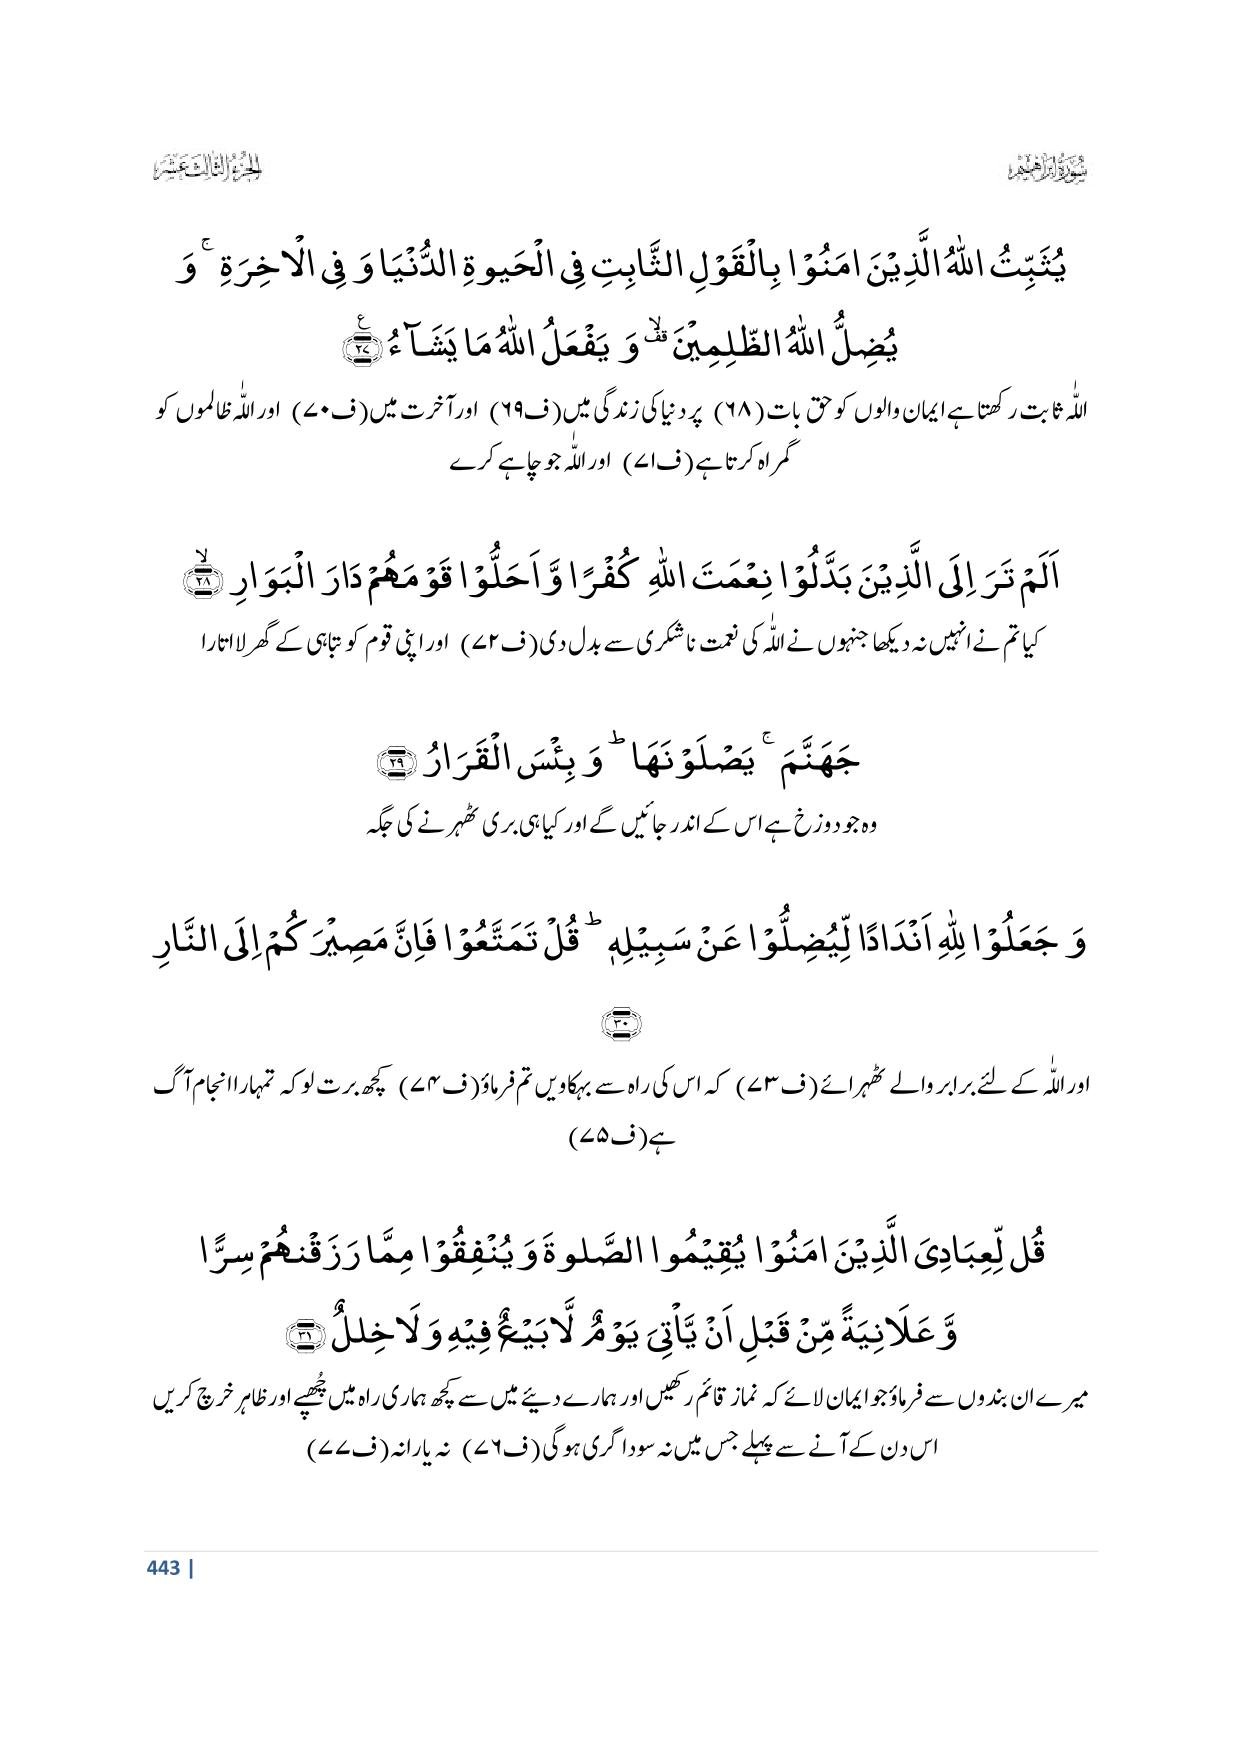 سُوْرَةُ اِبْرَاهِيْم
الجُزءُ الثَّالِثَ عَشَرَ
يُثَبِّتُ اللّٰهُ الَّذِیْنَ اٰمَنُوْا بِالْقَوْلِ الثَّابِتِ فِی الْحَیٰوةِ الدُّنْیَا وَ فِی الْاٰخِرَةِ ۚ وَ
یُضِلُّ اللّٰهُ الظّٰلِمِیْنَ ۙ۫ وَ یَفْعَلُ اللّٰهُ مَا یَشَآءُ ﴿۲۷﴾ ع
اللّٰہ ثابت رکھتا ہے ایمان والوں کو حق بات (۶۸) پر دنیا کی زندگی میں (ف۶۹) اور آخرت میں (ف۷۰) اور اللّٰہ ظالموں کو
گمراہ کرتا ہے (ف۷۱) اور اللّٰہ جو چاہے کرے
اَلَمْ تَرَ اِلَی الَّذِیْنَ بَدَّلُوْا نِعْمَتَ اللّٰهِ كُفْرًا وَّ اَحَلُّوْا قَوْمَهُمْ دَارَ الْبَوَارِ ﴿ۙ۲۸﴾
کیا تم نے انہیں نہ دیکھا جنہوں نے اللّٰہ کی نعمت ناشکری سے بدل دی (ف۷۲) اور اپنی قوم کو تباہی کے گھر لا اتارا
جَهَنَّمَ ۚ یَصْلَوْنَهَا ؕ وَ بِئْسَ الْقَرَارُ ﴿۲۹﴾
وہ جو دوزخ ہے اس کے اندر جائیں گے اور کیا ہی بری ٹھہرنے کی جگہ
وَ جَعَلُوْا لِلّٰهِ اَنْدَادًا لِّیُضِلُّوْا عَنْ سَبِیْلِهٖ ؕ قُلْ تَمَتَّعُوْا فَاِنَّ مَصِیْرَكُمْ اِلَی النَّارِ
﴿۳۰﴾
اور اللّٰہ کے لئے برابر والے ٹھہرائے (ف۷۳) کہ اس کی راہ سے بہکاویں تم فرماؤ (ف۷۴) کچھ برت لو کہ تمہارا انجام آگ
ہے (ف۷۵)
قُل لِّعِبَادِیَ الَّذِیْنَ اٰمَنُوْا یُقِیْمُوا الصَّلٰوةَ وَ یُنْفِقُوْا مِمَّا رَزَقْنٰهُمْ سِرًّا
وَّ عَلَانِیَةً مِّنْ قَبْلِ اَنْ یَّاْتِیَ یَوْمٌ لَّا بَیْعٌ فِیْهِ وَ لَا خِلٰلٌ ﴿۳۱﴾
میرے ان بندوں سے فرماؤ جو ایمان لائے کہ نماز قائم رکھیں اور ہمارے دیئے میں سے کچھ ہماری راہ میں چُھپے اور ظاہر خرچ کریں
اس دن کے آنے سے پہلے جس میں نہ سوداگری ہوگی (ف۷۶) نہ یارانہ (ف۷۷)
443 |